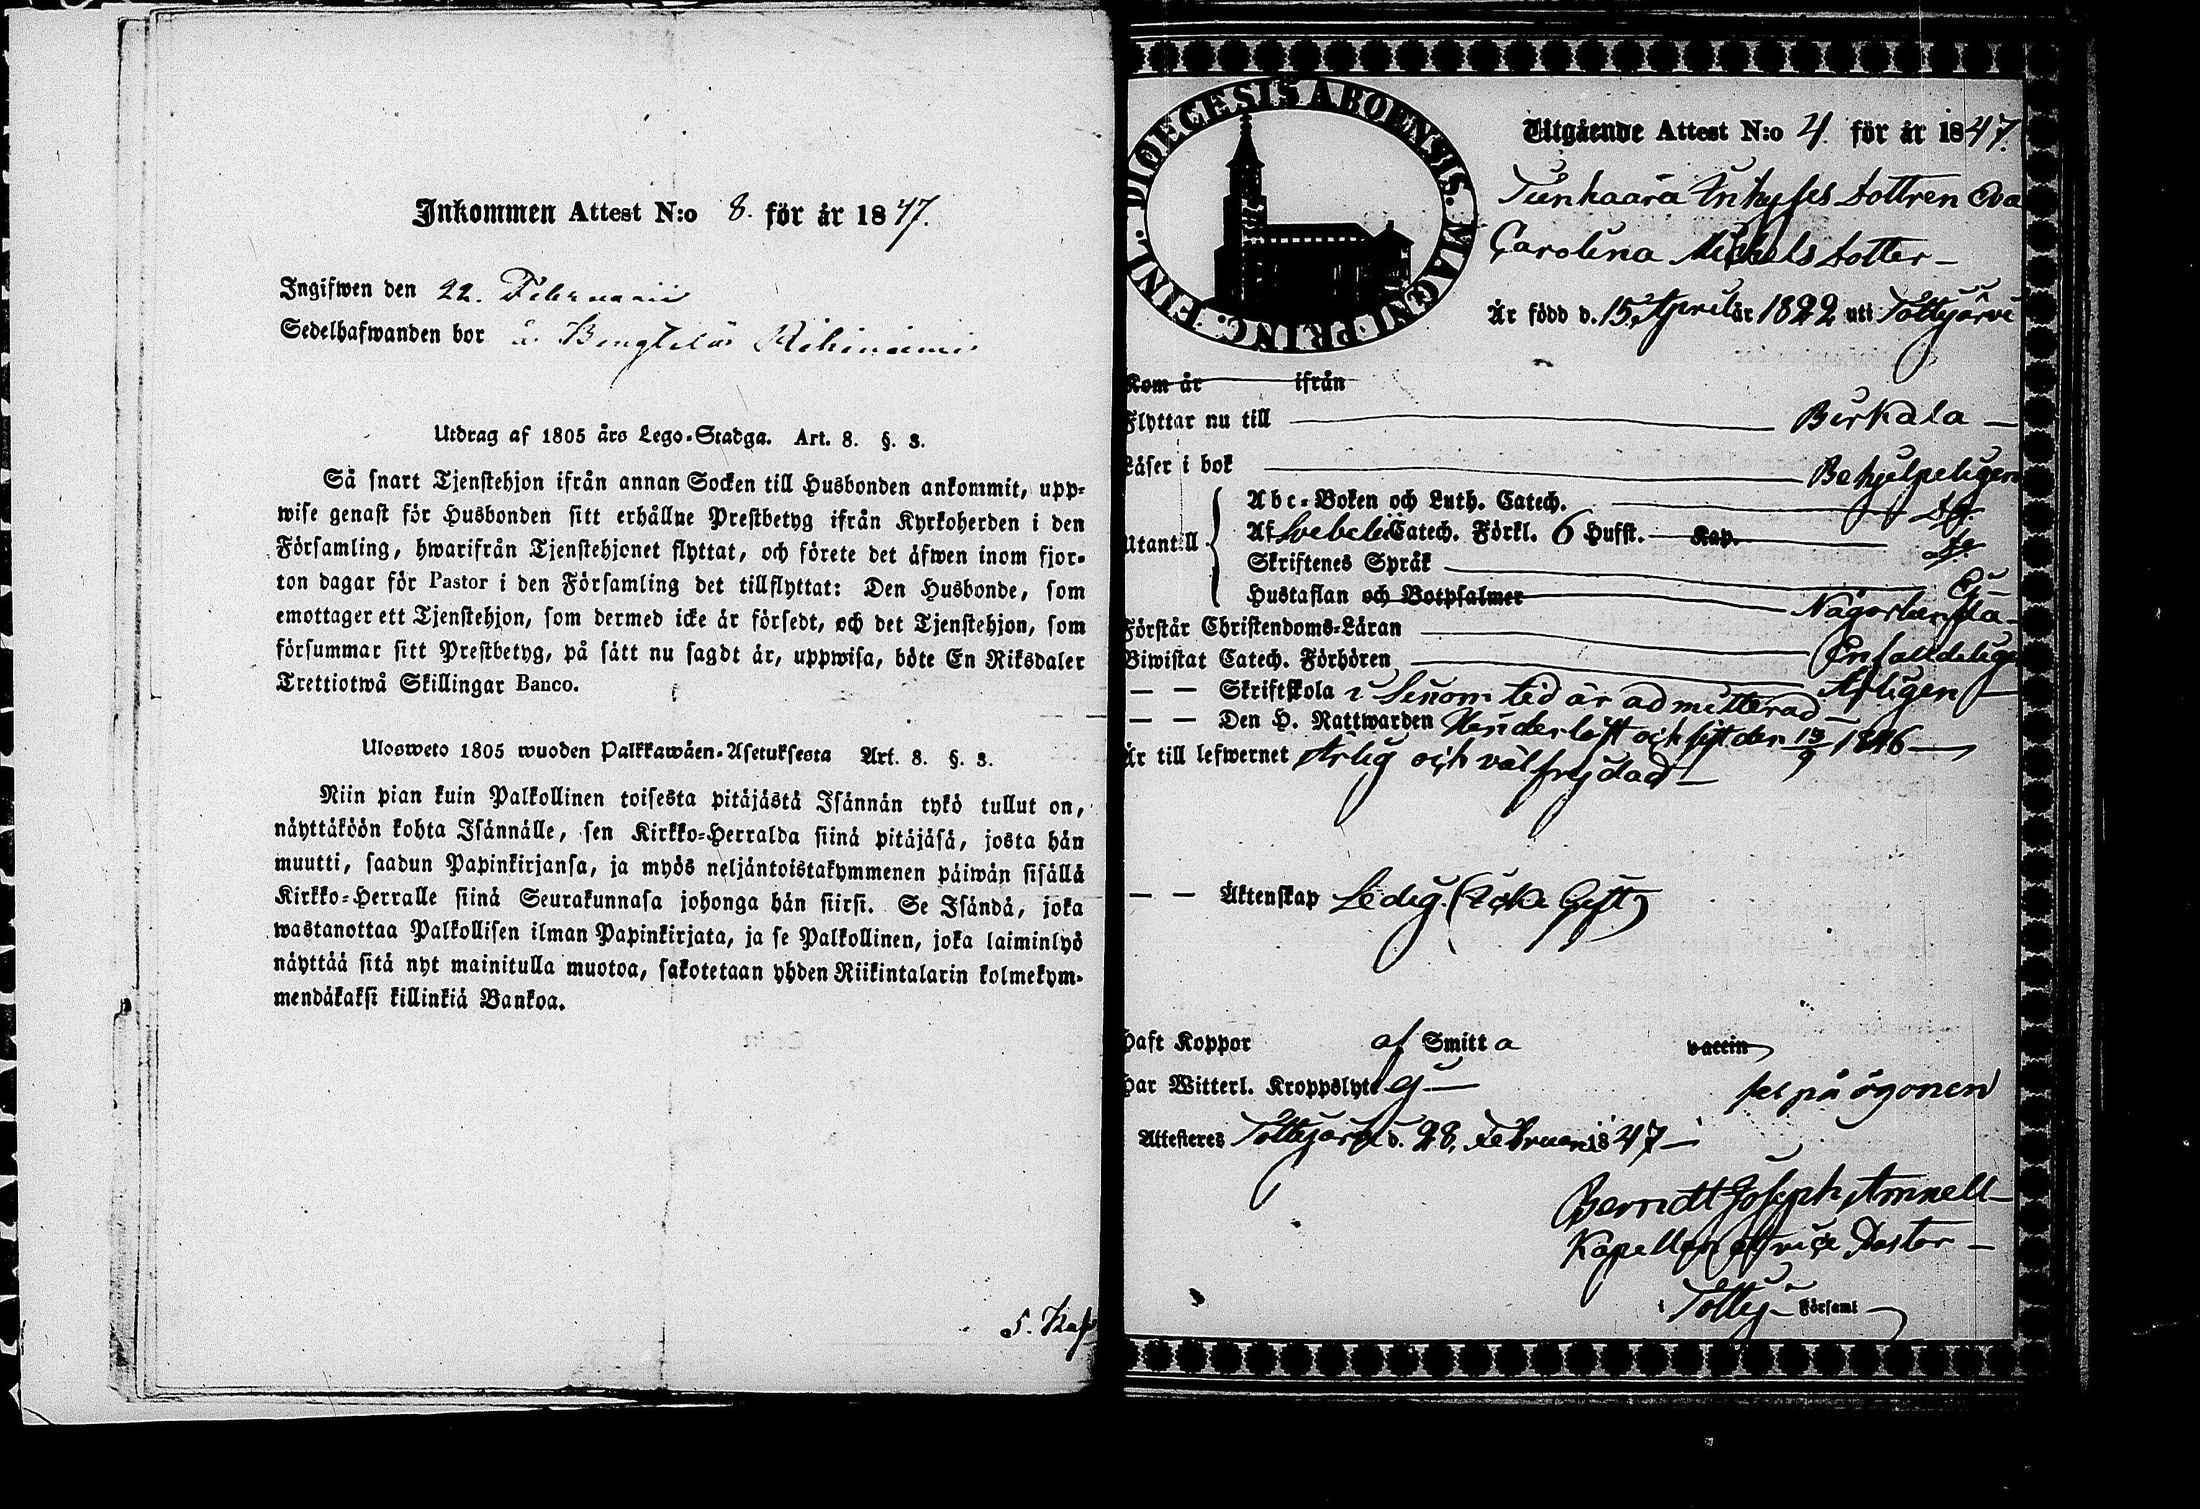 Inkommen Attest N:o 8. för år 1847.
Ingifwen den 22. Februarii
Sedelhafwanden bor å Bengtilä Riihiniemi
Utdrag af 1805 års Lego-Stadga. Art. 8. §. 3.
Så snart Tjenstehjon ifrån annan Socken till Husbonden ankommit, upp-
wise genast för Husbonden sitt erhållne Prestbetyg ifrån Kyrkoherden i den
Församling, hwarifrån Tjenstehjonet flyttat, och förete det äfwen inom fjor-
ton dagar för Pastor i den Församling det tillflyttat: Den Husbonde, som
emottager ett Tjenstehjon, som dermed icke är försedt, och det Tjenstehjon, som
försummar sitt Prestbetyg, på sätt nu sagdt är, uppwisa, böte En Riksdaler
Trettiotwå Skillingar Banco.
Ulosweto 1805 wuoden Palkkawäen-Asetuksesta Art. 8. §. 3.
Niin pian kuin Palkollinen toisesta pitäjästä Isännän tykö tullut on,
näyttäköön kohta Isännälle, sen Kirkko-Herralda siinä pitäjäsä, josta hän
muutti, saadun Papinkirjansa, ja myös neljäntoistakymmenen päiwän sisällä
Kirkko-Herralle siinä Seurakunnasa johonga hän siirsi. Se Isändä, joka
wastanottaa Palkollisen ilman Papinkirjata, ja se Palkollinen, joka laiminlyö
näyttää sitä nyt mainitulla muotoa, sakotetaan yhden Riikintalarin kolmekym-
mendäkaksi killinkiä Bankoa.
DIOECESIS ABOENSIS. MAGNI PRINC. FINL.
Utgående Attest N:o 4. för år 1847.
dottren Eva
Carolina Michels dotter
Är född d. 15 April år 1822 uti Tottijärvi
Kom år ifrån
Flyttar nu till Birkala
Läser i bok Behjelpeligen
Abc-Boken och Luth. Catech. do
Utantill Af Svebelii Catech. Förkl. 6 Hufst. Kap. do
Skriftenes Språk Ej
Hustaflan och Botpsalmer Någorlunda
Förstår Christendoms-Läran Enfaldeligen
Biwistat Catech. Förhören Årligen
— — Skriftskola i sinom tid är admitterad
— — Den H. Nattwarden Händerligt och sist den 13/9 1846
Är till lefwernet Ärlig och välfrejdad
— — Äktenskap Ledig. (Icke Gift)
Haft Koppor af Smitta vaccin
Har Witterl. Kroppslyte ej fel på ögonen
Attesteres Tottijärvi d. 28. Februarii 1847
Berndt Joseph Amnell
Kapellan et vice Pastor
i Tottij. Församl